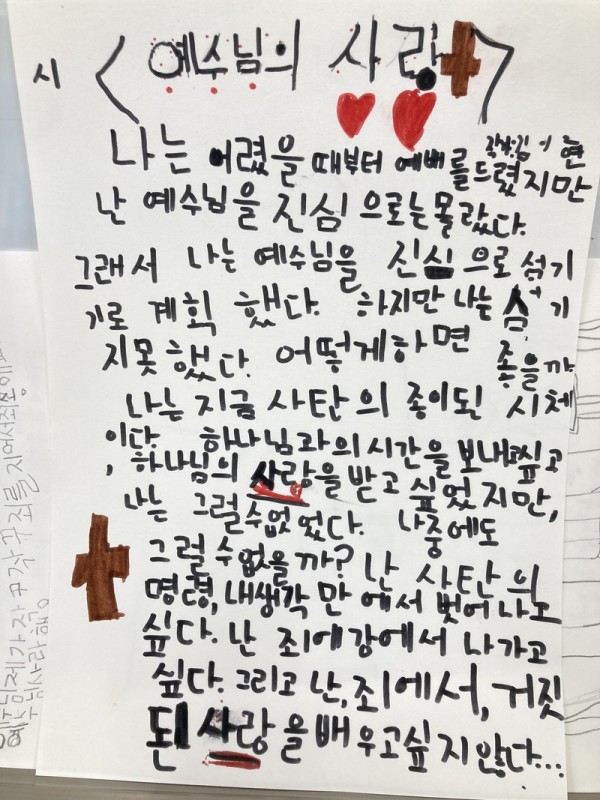 시 <예수님의 사랑>
작사:김이현
나는 어렸을 때부터 예배를드렸지만
난 예수님을 진심으로는몰랐다.
그래서 나는 예수님을 진심으로 섬기
기로 계획했다. 하지만 나는 섬기
지못했다. 어떻게하면 좋을까
나는 지금 사탄의 종이된 시체
이다. 하나님과의시간을 보내고싶고
, 하나님의 사랑을받고 싶었지만,
나는 그럴수없었다. 나중에도
그럴수없을까? 난 사탄의
명령, 내생각만에서 벗어나고
싶다. 난 죄에강에서 나가고
싶다. 그리고 난, 죄에서, 거짓
된 사랑을배우고싶지않다...